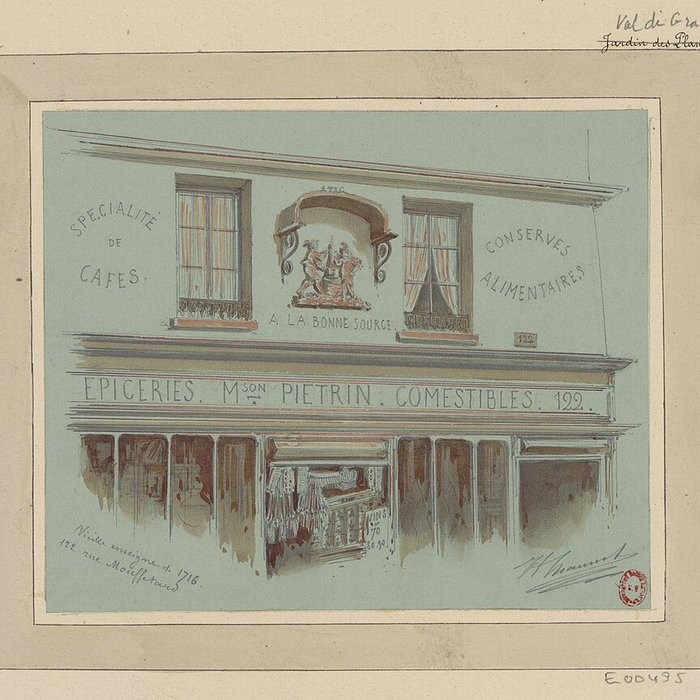 Val di Gra
Jardin des Plan
SPECIALITÉ
DE
CAFES.
CONSERVES
ALIMENTAIRES
A LA BONNE SOURCE.
122
EPICERIES. MSON PIETRIN. COMESTIBLES. 122.
VINS
70
80.90
Vieille enseigne de 1716
122 rue Mouffetard
E00495